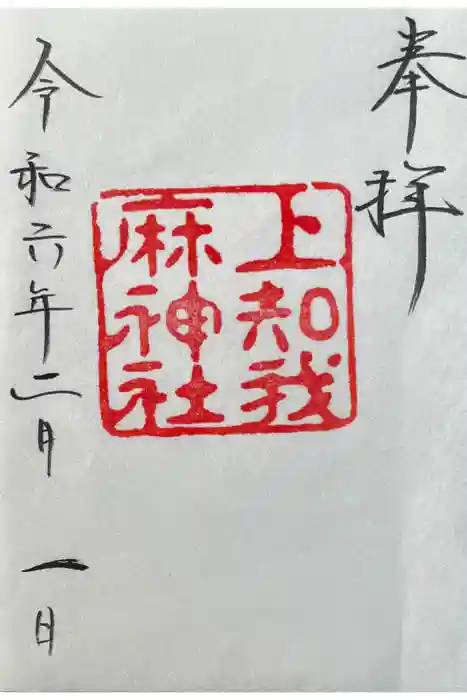 奉拝
上知我
麻神社
令和六年二月一日